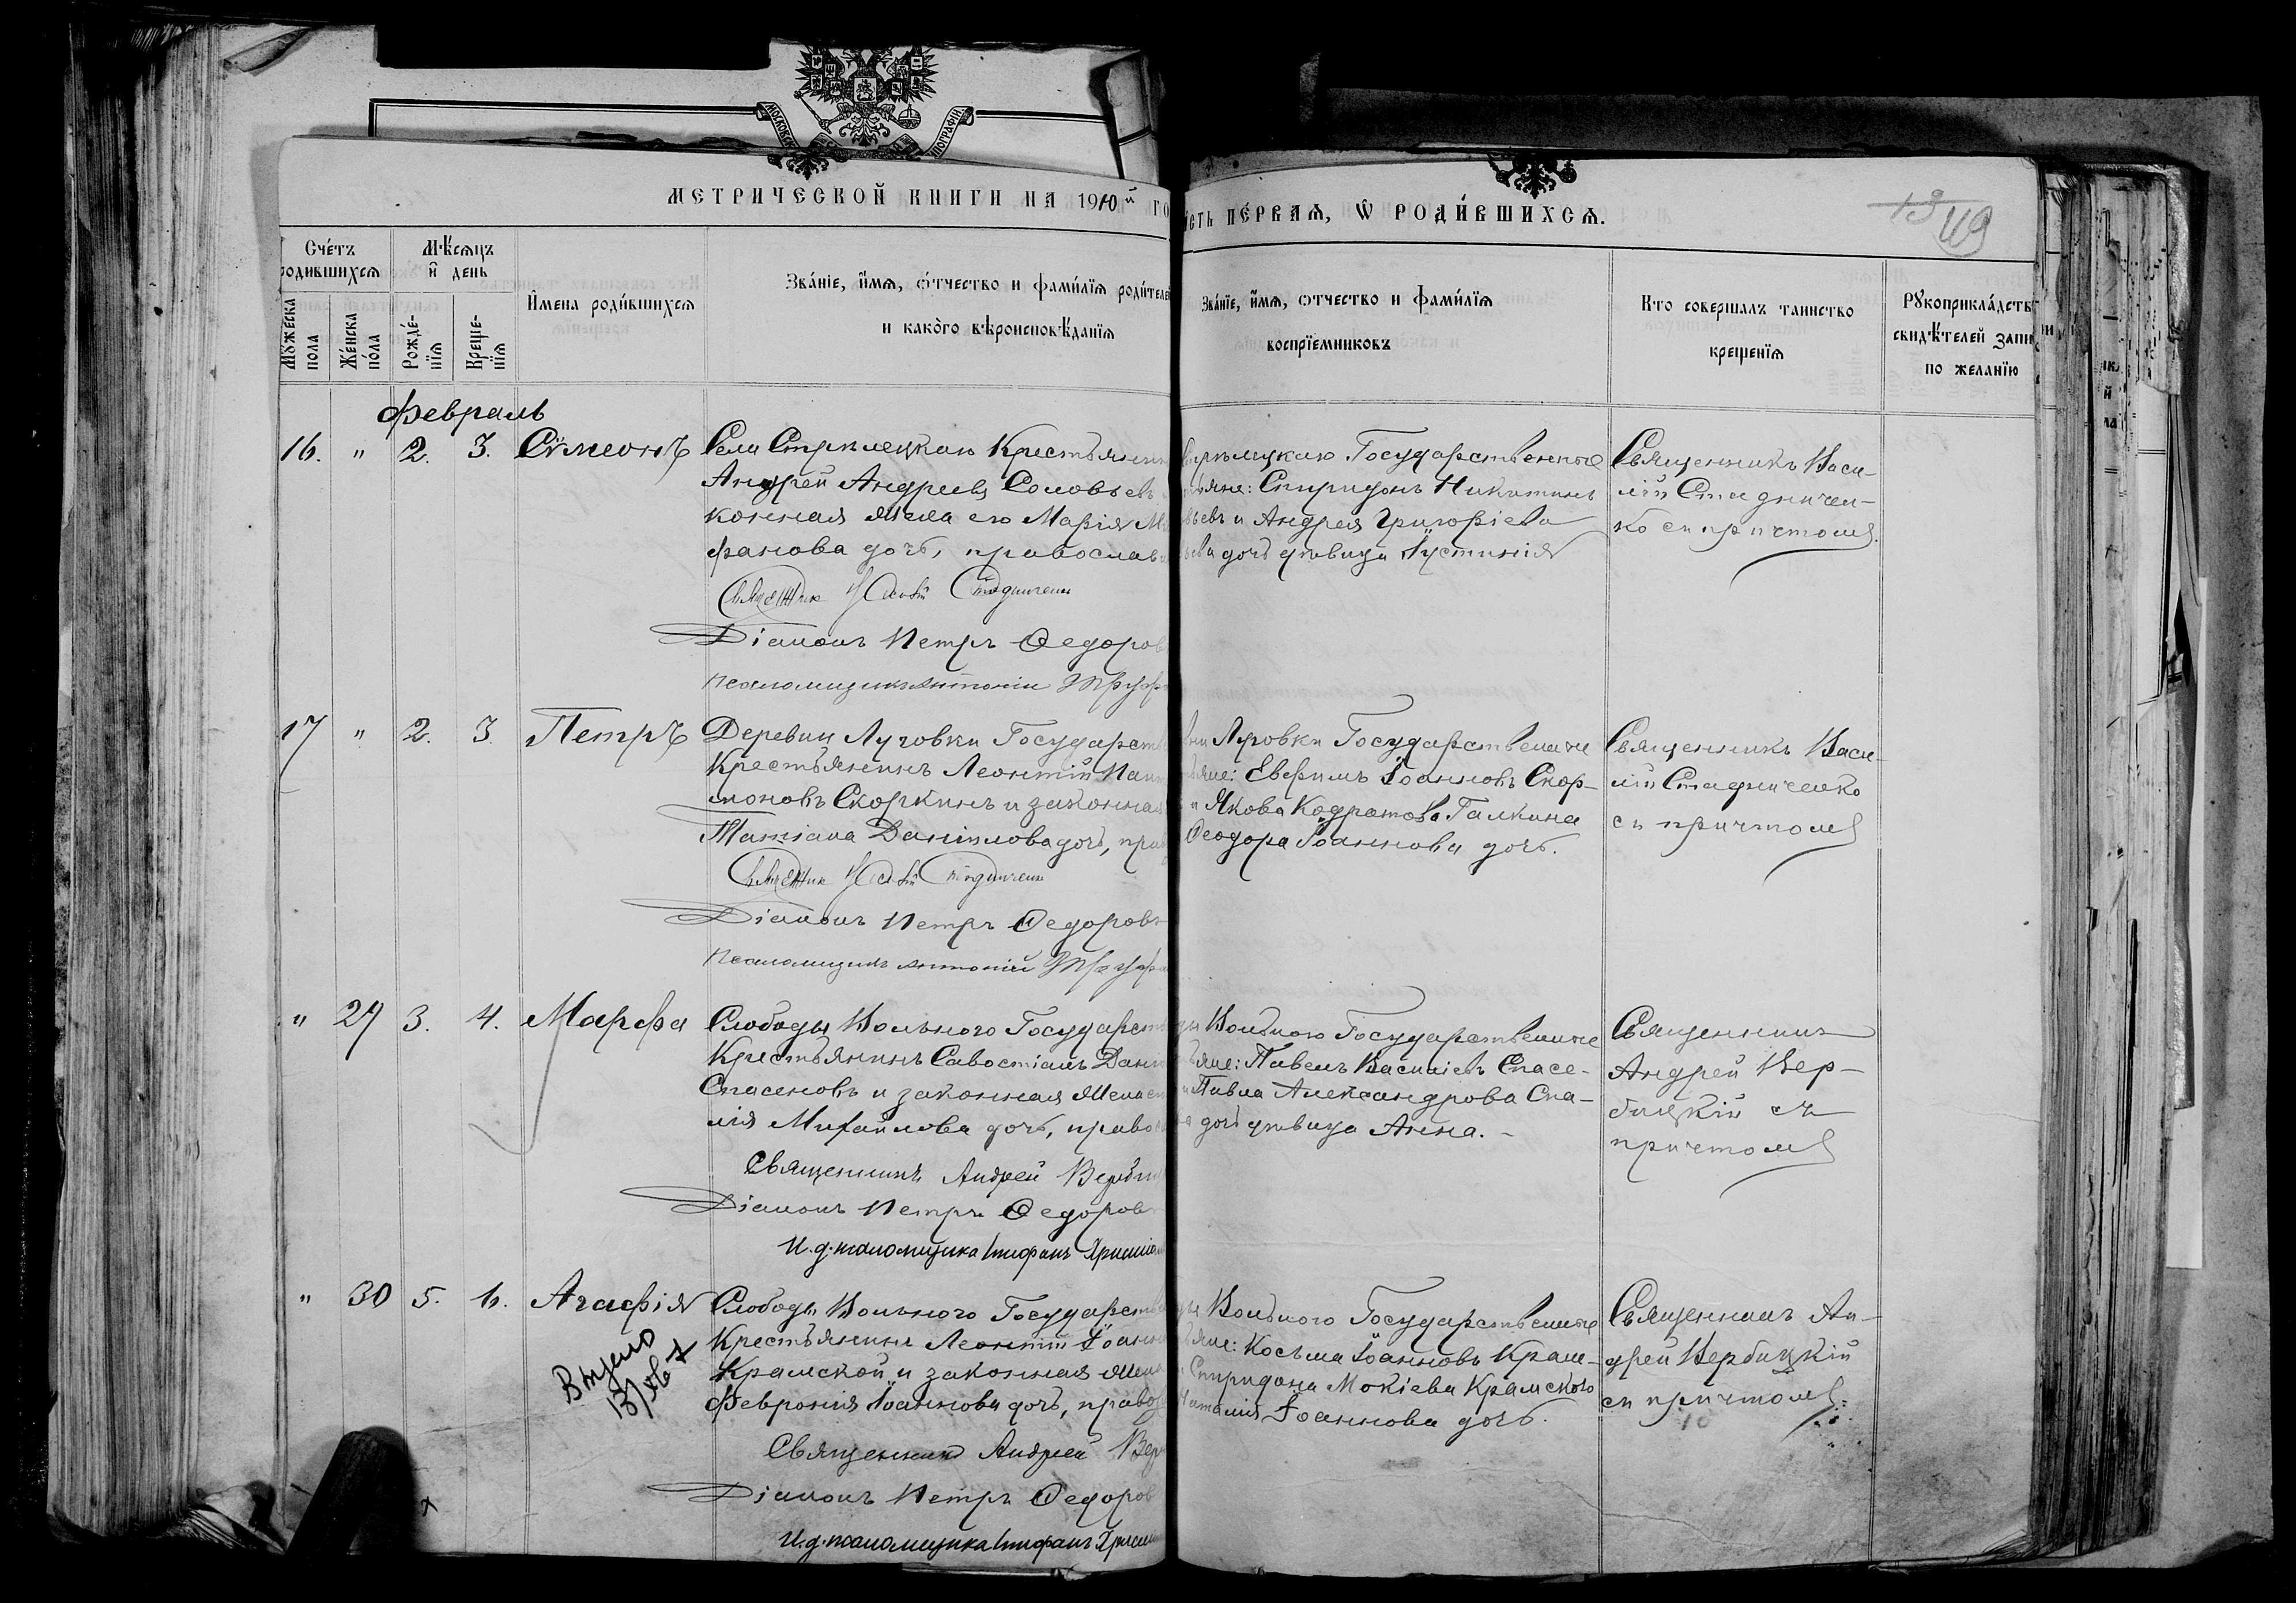 МОСКОВСК
ТИПОГРАФІИ.
МЕТРИЧЕСКОЙ КНИГИ НА 1910й ГО
СТЬ ПЕРВАЯ, Ѿ РОДИВШИХСЯ.
19
49
Счетъ
родившихся
Мѣсяцъ
и день
Имена родившихся
Званіе, имя, отчество и фамилія родителе
и какого вѣроисповѣданія
Мужеска
пола
Женска
пола
Рожде-
нія
Креще-
нія
Званіе, имя, отчество и фамилія
воспріемниковъ
Кто совершалъ таинство
крещенія
Рукоприкладств
свидѣтелей запи
по желанію
Февраль
16. " 2. 3. Сѵмеонъ
Села Стрѣлецкаго Крестьянин
Андрей Андреевъ Соловьевъ
конная жена его Марія М
фанова дочь, православ
Священник Василій Стадниченко
Діаконъ Петръ Ѳедоров
Псаломщикъ Антоній
стрѣлецкаго Государственные
яне: Спиридонъ Никитинъ
вьевъ и Андрея Григоріева
ева дочь дѣвица Іустинія
Священникъ Васи-
лій Стадничен-
ко съ причтомъ.
17 " 2. 3. Петръ
Деревни Луговки Государств
Крестьянинъ Леонтій Пант
моновъ Скоркинъ и законная
Татіана Даніилова дочь, прав
Священник Василій Стадниченко
Діаконъ Петръ Ѳедоровъ
Псаломщикъ Антоній
вни Луговки Государственные
яне: Евфимъ Іоанновъ Скор-
и Якова Кодратова Галкина
Ѳеодора Іоаннова дочь.
Священникъ Васи-
лій Стадниченко
съ причтомъ
" 29 3. 4. Марфа
Слободы Вольного Государств
Крестьянинъ Савостіанъ Дани
Спасеновъ и законная жена е
лія Михайлова дочь, право
Священникъ Андрей Верби
Діаконъ Петръ Ѳедоров
И.д. псаломщика Стефанъ
ды Вольного Государственные
яне: Павелъ Василіевъ Спасе-
и Павла Александрова Спа-
дочь дѣвица Анна. -
Священникъ
Андрей Вер-
бицкій съ
причтомъ
" 30 5. 6. Агафія
Слободы Вольного Государств
Крестьянинъ Леонтій Іоанн
Крамской и законная жен
Февронія Іоаннова дочь, право
Священникъ Андрей Вер
Діаконъ Петръ Ѳедоров
И.д. псаломщика Стефанъ
ды Вольного Государственные
яне: Косьма Іоанновъ Крам-
Спиридона Мокіева Крамского
Наталія Іоаннова дочь.
Священникъ Ан-
дрей Вербицкій
съ причтомъ.